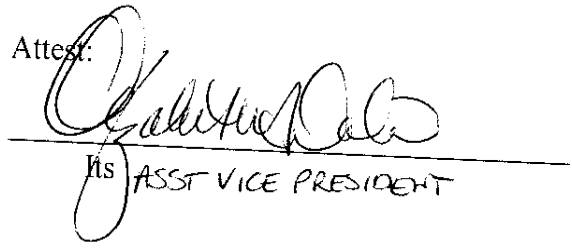 Attest:
Its ASST VICE PRESIDENT